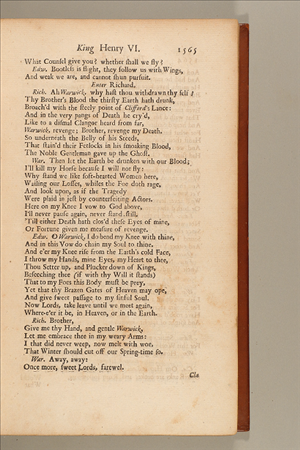 King Henry VI. 1565
What Counsel give you? whether shall we fly?
Edw. Bootless is flight, they follow us with Wings,
And weak we are, and cannot shun pursuit.
Enter Richard.
Rich. Ah Warwick, why hast thou withdrawn thy self?
Thy Brother's Blood the thirsty Earth hath drunk,
Broach'd with the steely point of Clifford's Lance:
And in the very pangs of Death he cry'd,
Like to a dismal Clangor heard from far,
Warwick, revenge; Brother, revenge my Death.
So underneath the Belly of his Steeds,
That stain'd their Fetlocks in his smoaking Blood,
The Noble Gentleman gave up the Ghost.
War. Then let the Earth be drunken with our Blood;
I'll kill my Horse because I will not fly:
Why stand we like soft-hearted Women here,
Wailing our Losses, whiles the Foe doth rage,
And look upon, as if the Tragedy
Were plaid in jest by counterfeiting Actors.
Here on my Knee I vow to God above,
I'll never pause again, never stand still,
'Till either Death hath clos'd these Eyes of mine,
Or Fortune given me measure of revenge.
Edw. O Warwick, I do bend my Knee with thine,
And in this Vow do chain my Soul to thine.
And e'er my Knee rise from the Earth's cold Face,
I throw my Hands, mine Eyes, my Heart to thee,
Thou Setter up, and Plucker down of Kings,
Beseeching thee (if with thy Will it stands)
That to my Foes this Body must be prey,
Yet that thy Brazen Gates of Heaven may ope,
And give sweet passage to my sinful Soul.
Now Lords, take leave until we meet again,
Where-e'er it be, in Heaven, or in the Earth.
Rich. Brother,
Give me thy Hand, and gentle Warwick,
Let me embrace thee in my weary Arms:
I that did never weep, now melt with woe,
That Winter should cut off our Spring-time so.
War. Away, away:
Once more, sweet Lords, farewel.
Cla